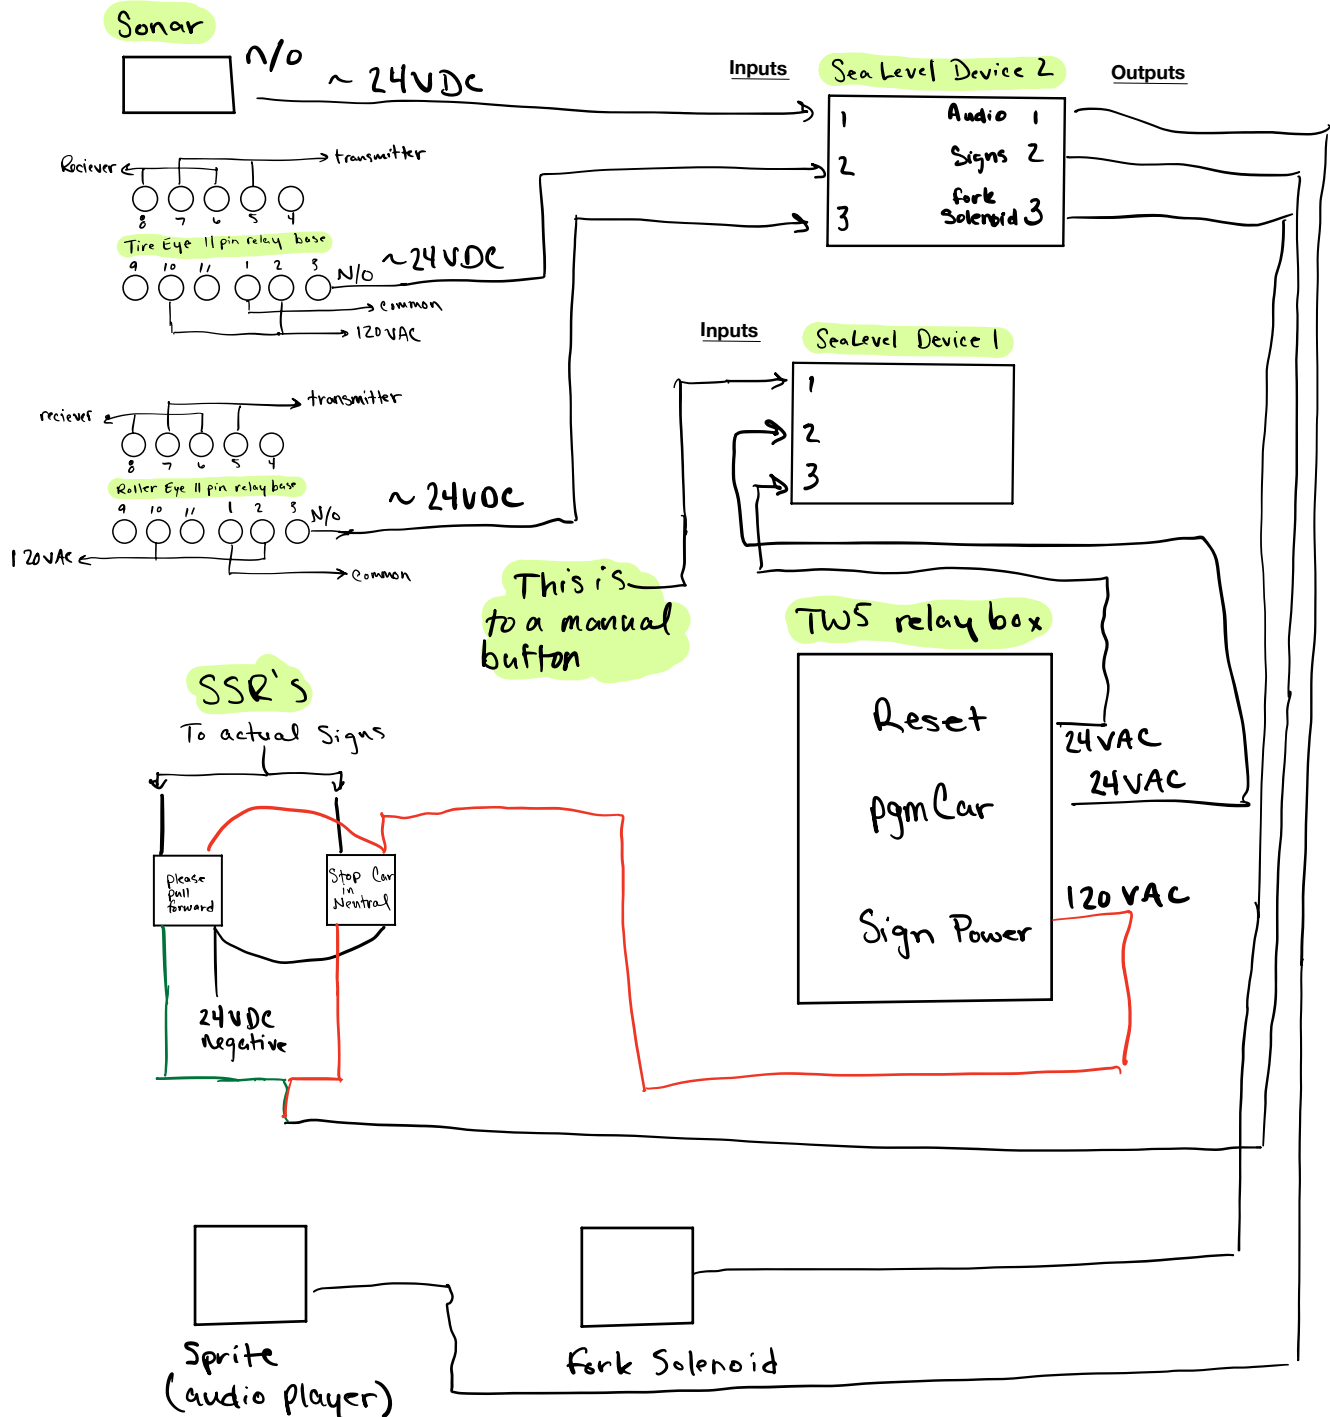 Sonar
N/O
~ 24VDC
Inputs
SeaLevel Device 2
Outputs
1 Audio 1
2 Signs 2
3 fork Solenoid 3
Reciever
transmitter
8 7 6 5 4
Tire Eye 11 pin relay base
9 10 11 1 2 3
N/O
~24VDC
common
120VAC
Inputs
SeaLevel Device 1
1
2
3
reciever
transmitter
8 7 6 5 4
Roller Eye 11 pin relay base
9 10 11 1 2 3
N/O
~ 24VDC
120VAC
Common
This is
to a manual
button
TW5 relay box
Reset
24VAC
pgmCar
24VAC
Sign Power
120VAC
SSR's
To actual Signs
please
pull
forward
Stop Car
in
Neutral
24VDC
negative
Sprite
(audio player)
Fork Solenoid